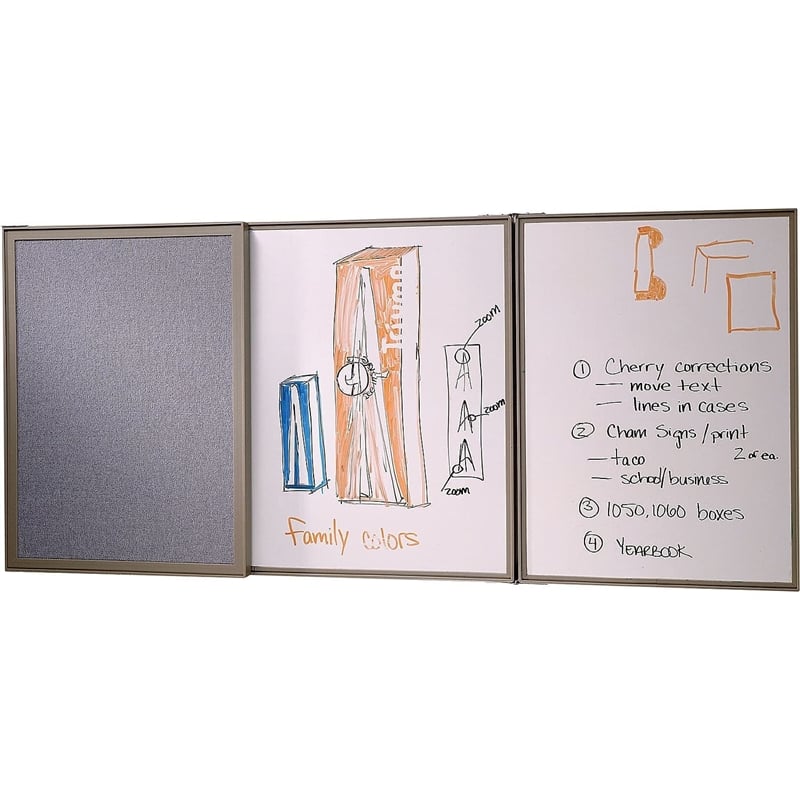 zoom
zoom
zoom
Family colors
① Cherry corrections
— move text
— lines in cases
② Cham Signs/print
2 of ea.
— taco
— school/business
③ 1050,1060 boxes
④ YEARBOOK